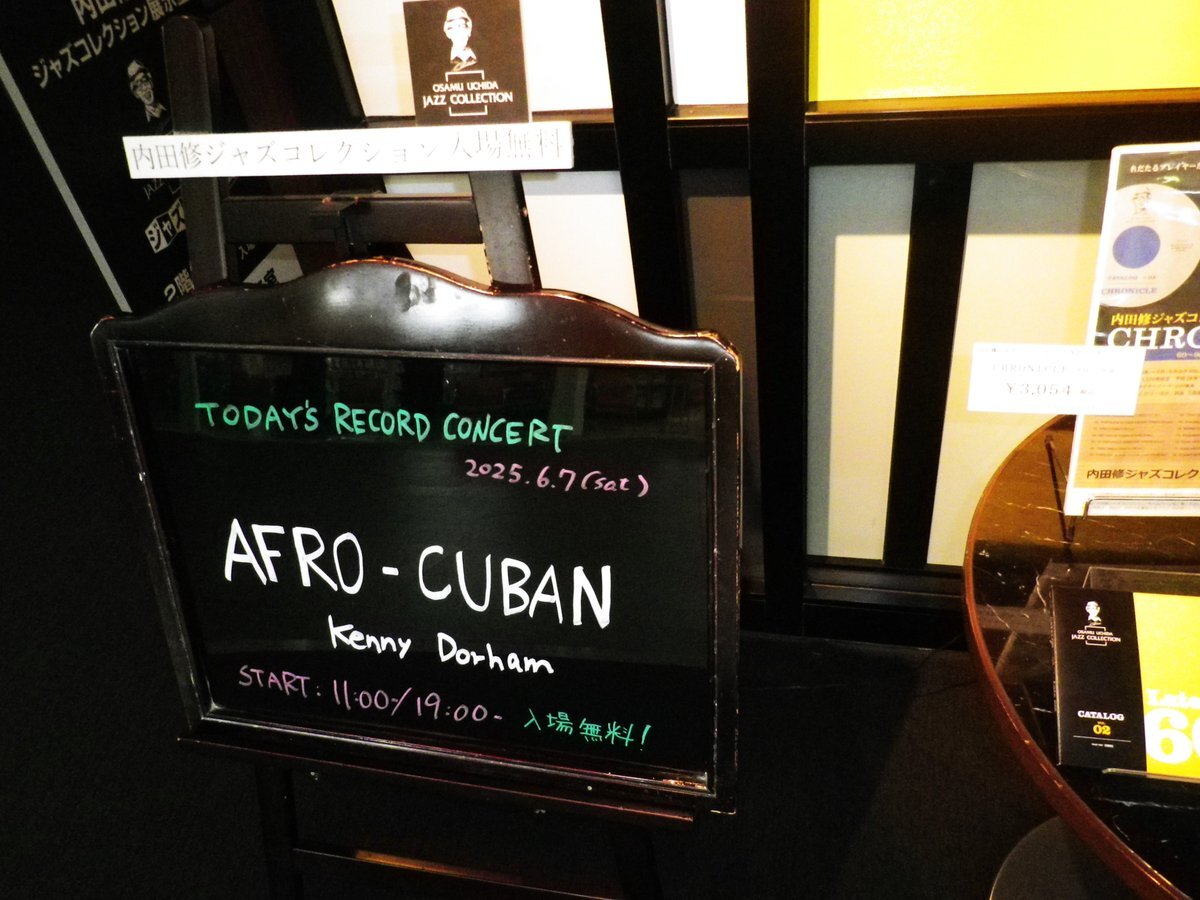 ジャズコレクション展示室
OSAMU UCHIDA
JAZZ COLLECTION
内田修ジャズコレクション 入場無料
ジャズ
2階
TODAY'S RECORD CONCERT
2025.6.7(sat)
AFRO-CUBAN
Kenny Dorham
START: 11:00-/19:00-
入場無料!
名だたるプレイヤー
CATALOG
CHRONICLE
内田修ジャズコ
CHRO
CHRONICLE
¥3,054
内田修ジャズコレク
OSAMU UCHIDA
JAZZ COLLECTION
CATALOG
02
Late
60